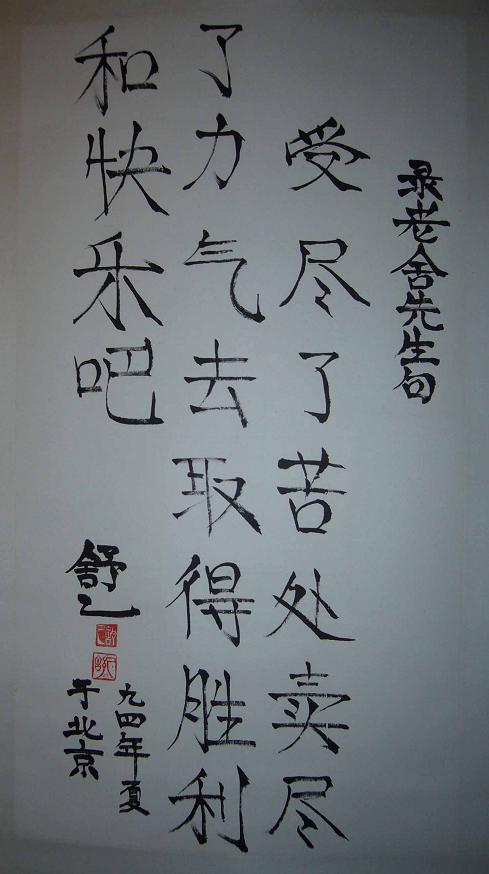 录老舍先生句
受尽了苦处卖尽
了力气去取得胜利
和快乐吧
舒乙
九四年夏
于北京